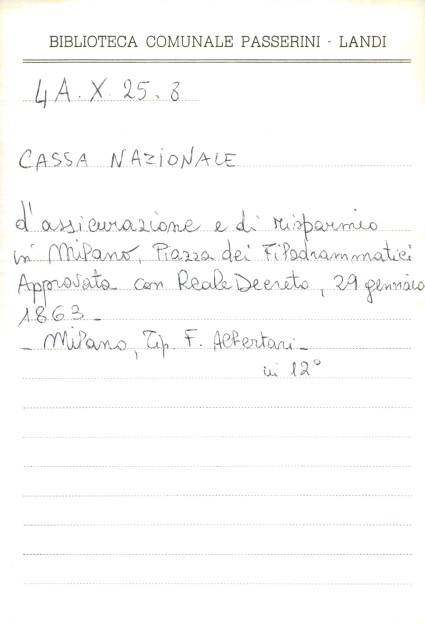 BIBLIOTECA COMUNALE PASSERINI - LANDI
4A. X. 25. 8
CASSA NAZIONALE
d'assicurazione e di risparmio
in Milano, Piazza dei Filodrammatici
Approvata con Reale Decreto, 29 gennaio
1863 -
- Milano, Tip. F. Albertari -
in 12°